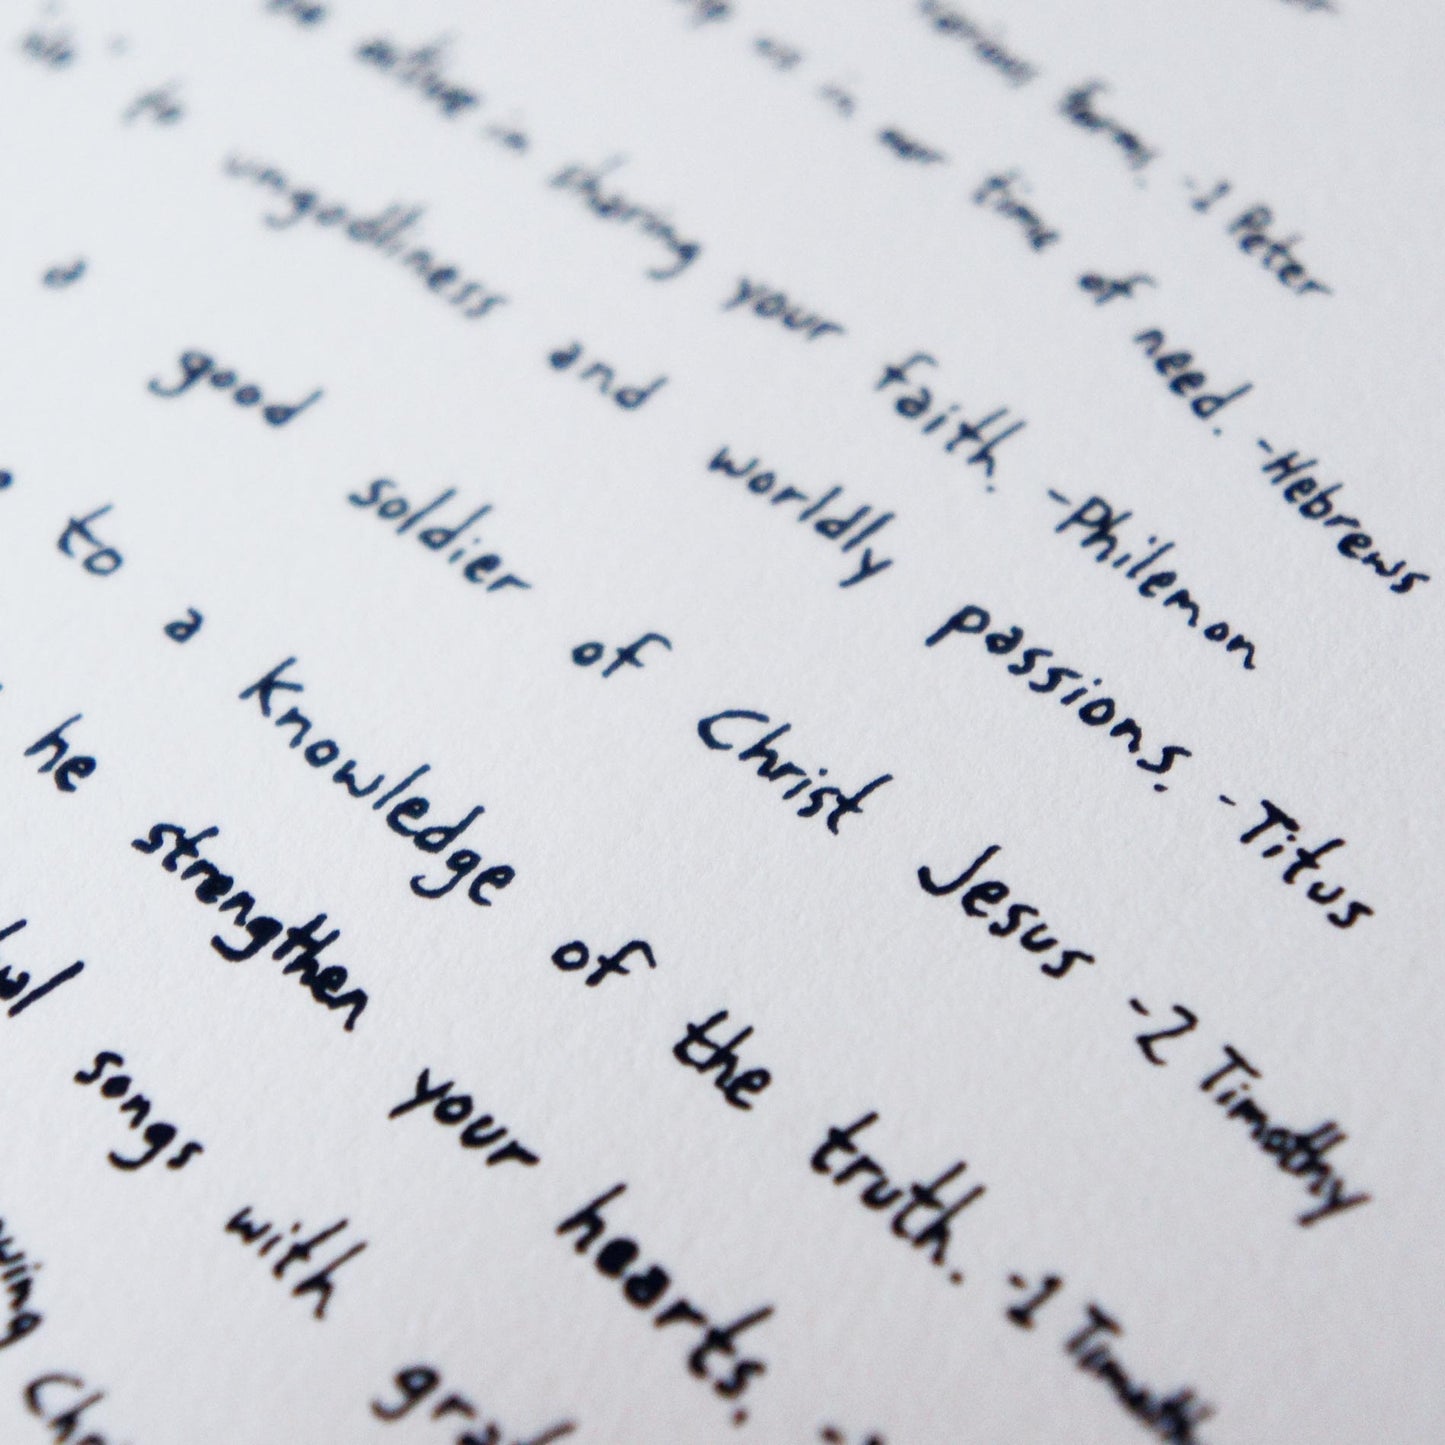 various forms. -1 Peter
us in our time of need. -Hebrews
be active in sharing your faith. -Philemon
to ungodliness and worldly passions. -Titus
a good soldier of Christ Jesus -2 Timothy
to a knowledge of the truth. -1 Timothy
he strengthen your hearts. -
songs with